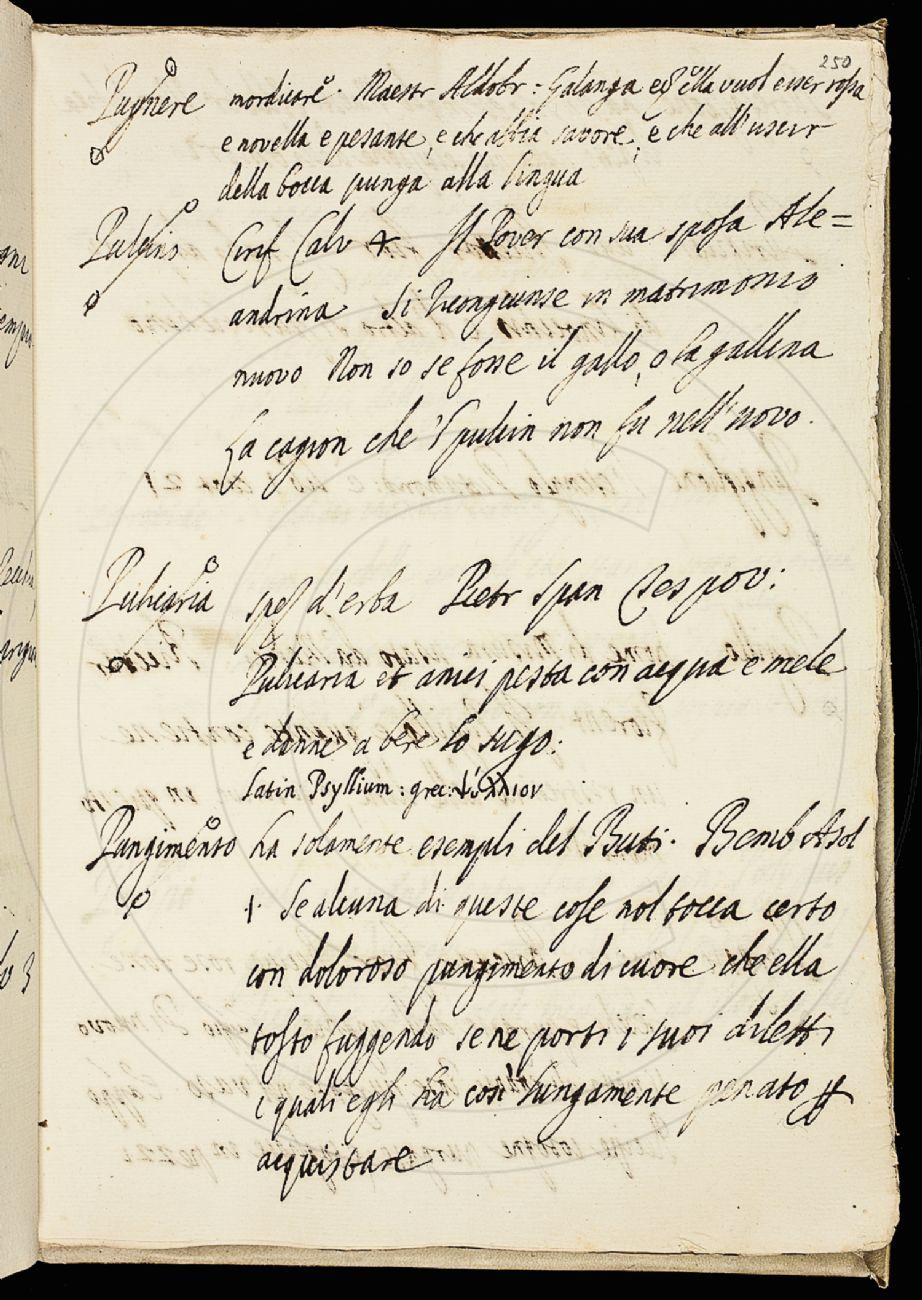 250
Pugnere mordicare. Maestr Aldobr: Galanga ed ella vuol esser rossa
e novella e pesante, e che abbia savore, e che all'uscir
della bocca punga alla lingua
Pulcino Cirif Calv 4 Il Pover con sua sposa Ale=
andrina Si ricongiunse in matrimonio
nuovo Non so se fosse il gallo, o la gallina
La cagion che 'l pulcin non fu nell'uovo.
Pulicaria spez d'erba Pietr Span Tes pov:
Pulicaria et anici pesta con acqua e mele
e danne a bere lo sugo:
Latin Psyllium: grec: ψύλλιον
Pungimento ha solamente esempli del Buti. Bemb Asol
1. Se alcuna di queste cose nol tocca certo
con doloroso pungimento di cuore che ella
tosto fuggendo se ne porti i suoi diletti
i quali egli ha così lungamente penato p
acquistare